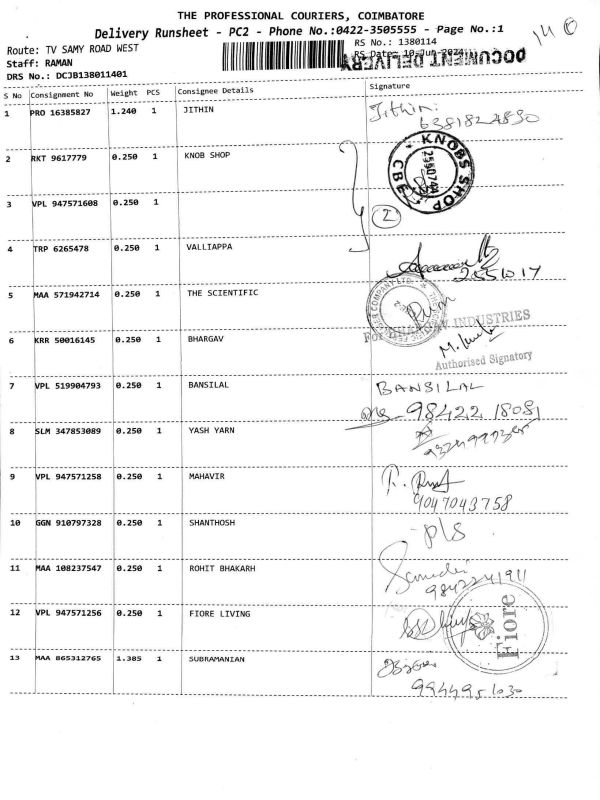 THE PROFESSIONAL COURIERS, COIMBATORE
Delivery Runsheet - PC2 - Phone No.:0422-3505555 - Page No.:1
Route: TV SAMY ROAD WEST
RS No.: 1380114
Staff: RAMAN
RS Date: 10-Jun-2024
DOCUMENT DELIVERY
DRS No.: DCJB138011401
S No Consignment No Weight PCS Consignee Details Signature
1 PRO 16385827 1.240 1 JITHIN Jithin
2 RKT 9617779 0.250 1 KNOB SHOP
KNOBS SHOP CBE
3 VPL 947571608 0.250 1
2
4 TRP 6265478 0.250 1 VALLIAPPA
2551017
5 MAA 571942714 0.250 1 THE SCIENTIFIC
INDUSTRIES
6 KRR 50016145 0.250 1 BHARGAV
Authorised Signatory
7 VPL 519904793 0.250 1 BANSILAL BANSILAL
98422 18081
8 SLM 347853089 0.250 1 YASH YARN
9 VPL 947571258 0.250 1 MAHAVIR
9047043758
10 GGN 910797328 0.250 1 SHANTHOSH
pls
11 MAA 108237547 0.250 1 ROHIT BHAKARH
9842241911
12 VPL 947571256 0.250 1 FIORE LIVING
Fiore
13 MAA 865312765 1.385 1 SUBRAMANIAN
9944951030